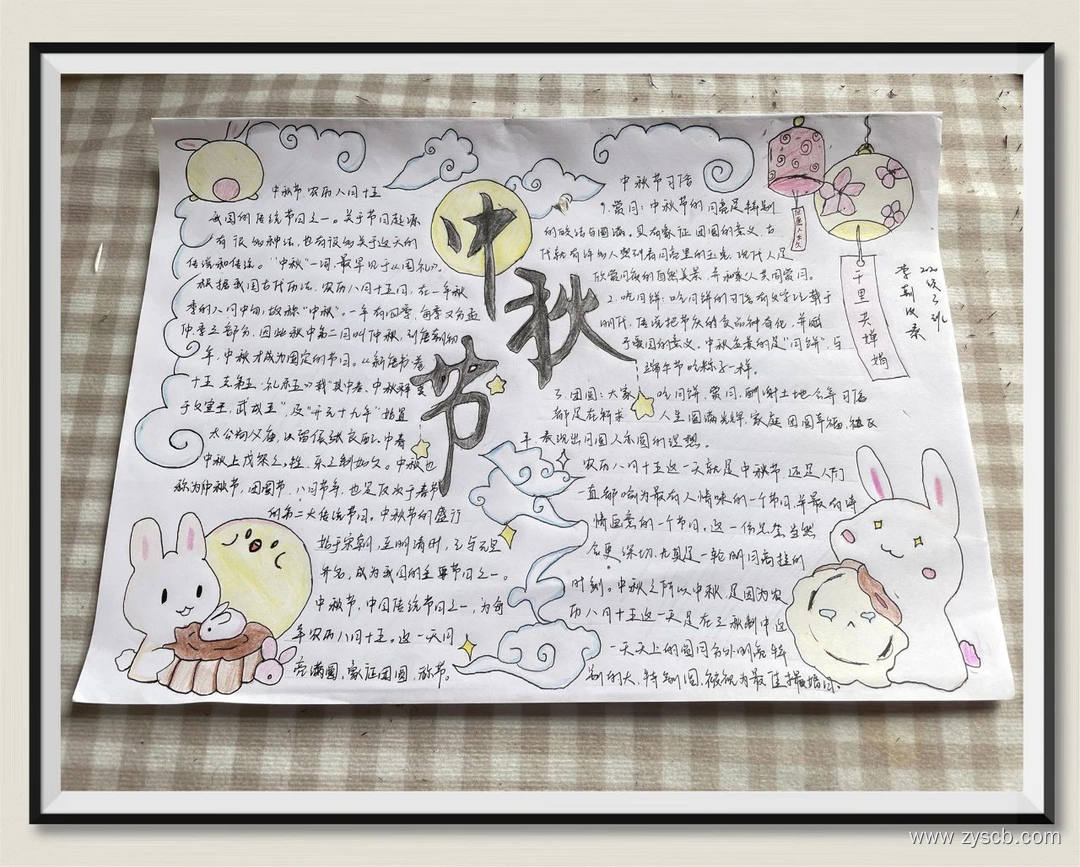 中
秋
节
中秋节农历八月十五
我国的传统节日之一。关于节日起源
有很多种说法,也有很多关于这天的
传说和传统。"中秋"一词,最早见于《周礼》。
根据我国古代历法,农历八月十五日,在一年秋
季的八月中旬,故称"中秋"。一年有四季,每季又分孟
仲季三部分,因此秋中第二月叫仲秋,到唐朝初
年,中秋才成为固定的节日。《新唐书卷
十五 志第五·礼乐五》载"其中春、中秋释奠
于文宣王、武成王"及"开元十九年,始置
太公尚父庙,以留侯张良配。中春
中秋上戊祭之,牲、乐之制如文。中秋也
称为仲秋节,团圆节,八月节等,也是仅次于春节
的第二大传统节日。中秋节的盛行
始于宋朝,至明清时,已与元旦
齐名,成为我国的主要节日之一。
中秋节,中国传统节日之一,为每
年农历八月十五。这一天月
亮满圆,家庭团圆,称节。
中秋节习俗
1.赏月:中秋节的月亮是特别
的皎洁与圆满。具有象征团圆的意义 古
代就有许多人想到看月亮里的玉兔,现代人是
欣赏月夜的自然美景,并和家人共同赏月。
2.吃月饼:吃月饼的习俗有文字记载于
明代,传说把节庆的食品神杳化,并赋
予爱国的意义。中秋应景的是"月饼",与
端午节吃粽子一样。
3.团圆:大家 吃月饼,赏月,酬谢土地公等习俗
都是在祈求 人生圆满光辉,家庭团圆幸福,
年。表现出月圆人亦圆的理想。
农历八月十五这一天就是中秋节,还是人们
一直都喻为最有人情味的一个节日,年最有诗
情画意的一个节日。这一份思念当然
会更深切,尤其是一轮明月高挂的
时刻。中秋之所以中秋,是因为农
历八月十五这一天是在三秋制中这
一天天上的圆月分外明亮特
别的大,特别圆,被视为最佳
千里共婵娟
但愿人长久
www.zyscb.com